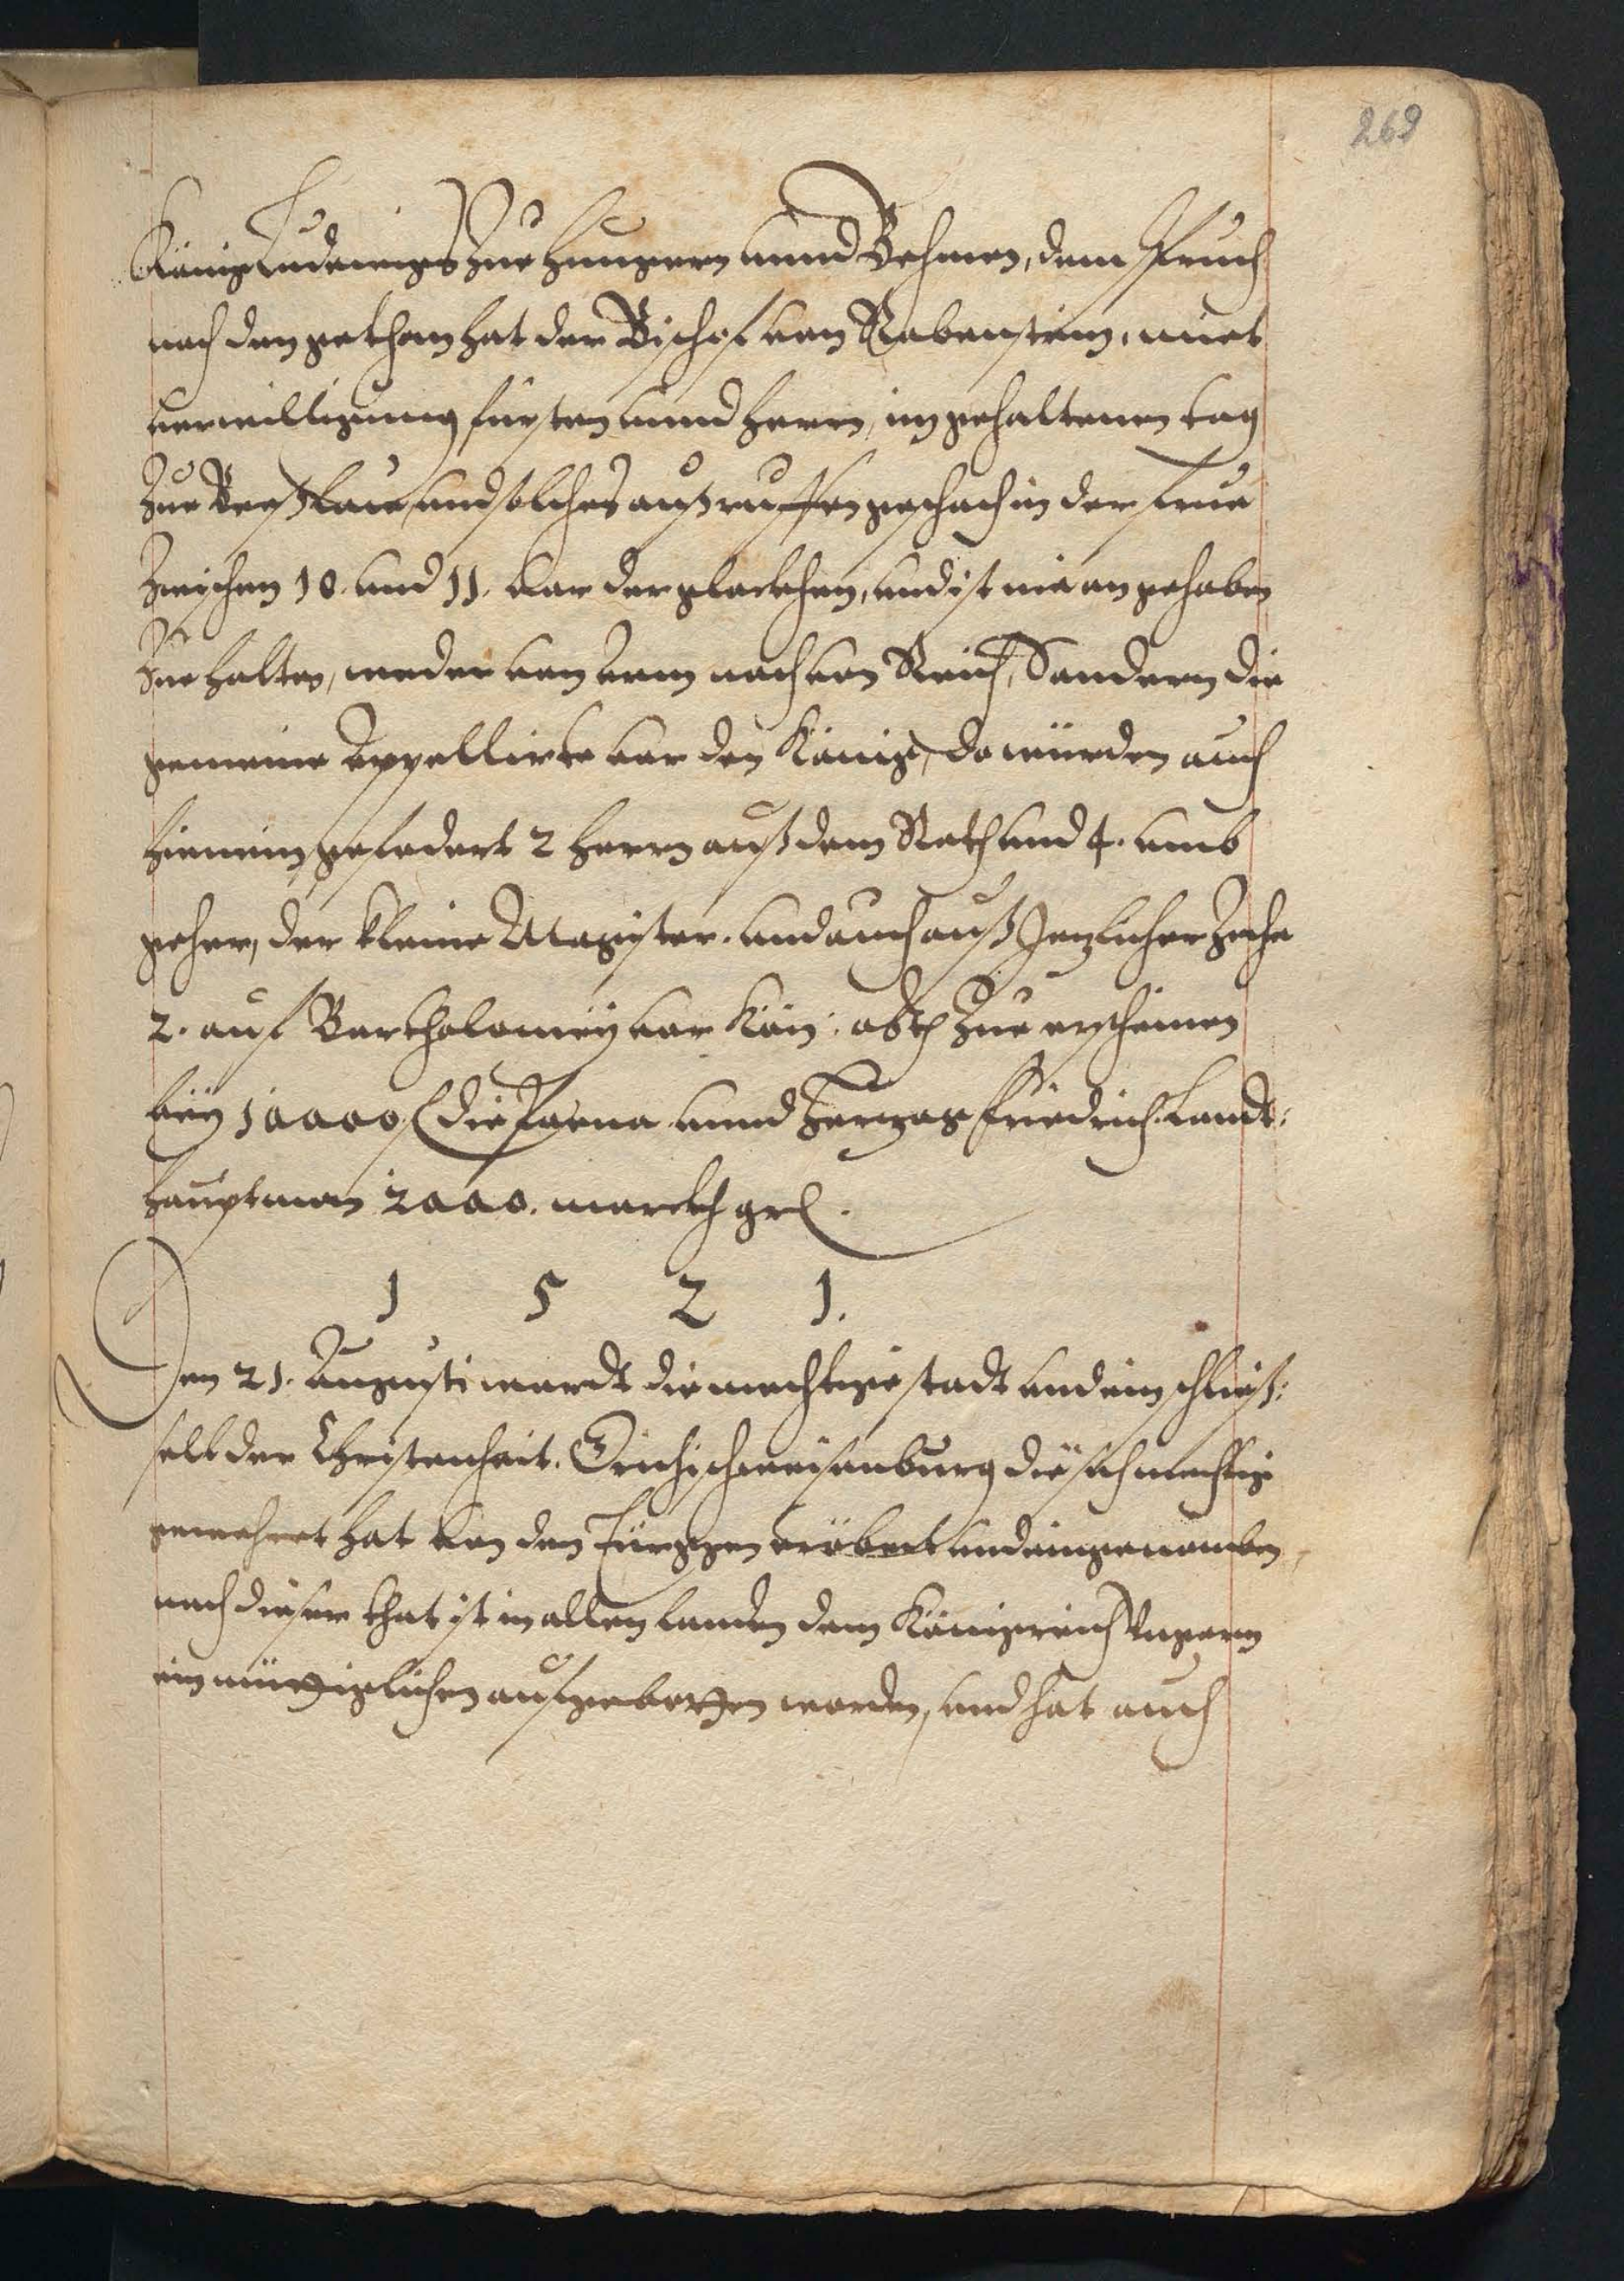 269
König Ludewigs zue Hungern unnd Behmen, dem spruch
nach den gethan hat der Bischof von Rabenstein, miet
verwilligung fürsten unnd herrn, im gehaltenen tag
zue Breßlau, und solches außruffen geschach in der frue
zwischen 10. und 11. vor der glockhen, und ist nie angehaben
zue halten, weder von arm noch von Reich, Sondern die
gemeine Appellirte vor den König, do würden auch
hienein gefodert 2 herrn auß dem Rath und 4. umb
geher, der kleine Magister. und auch auß Jetzlicher Zeche
2. auf Bartholomey vor Kön: zue erscheinen
beÿ 10000 die poena unnd Hertzog Friedrich Landt:
hauptman 2000. marckh grl.
1 5 2 1.
Den 21. Augusti wardt die mechtige stadt und ein schließ:
selt der Christenheit. Grichischweisenburg die sich mechtig
gewehret hat von den Türggen eröbert und eingenomben
nach dieser that ist in allen landen dem Königreich Ungern
ein müttiglichen aufgebotten worden, und hat auch